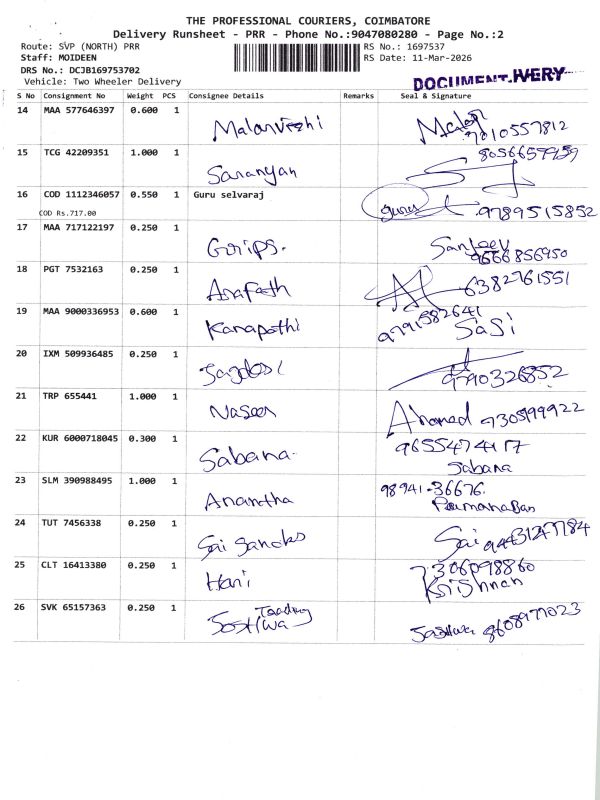 THE PROFESSIONAL COURIERS, COIMBATORE
Delivery Runsheet - PRR - Phone No.:9047080280 - Page No.:2
Route: SVP (NORTH) PRR
RS No.: 1697537
Staff: MOIDEEN
RS Date: 11-Mar-2026
DRS No.: DCJB169753702
Vehicle: Two Wheeler Delivery
S No Consignment No Weight PCS Consignee Details Remarks Seal & Signature
14 MAA 577646397 0.600 1 Malarvizhi
7010557812
15 TCG 42209351 1.000 1 Saranyan
8056659959
16 COD 1112346057 0.550 1 Guru selvaraj guru 9789515852
COD Rs.717.00
17 MAA 717122197 0.250 1 Grips. Sanjeev
9666856950
18 PGT 7532163 0.250 1 Arafath 6382761551
19 MAA 9000336953 0.600 1 Kanapathi 9791582641
SaSi
20 IXM 509936485 0.250 1
9790326852
21 TRP 655441 1.000 1 Naseer Ahamed 9730599922
22 KUR 6000718045 0.300 1 Sabana. 9655474117
Sabana
23 SLM 390988495 1.000 1 Anantha 98941-36676.
24 TUT 7456338 0.250 1 Sai Sai 9443147784
25 CLT 16413380 0.250 1 Hari 7306098860
Krishnan
26 SVK 65157363 0.250 1 Trading
8608977023